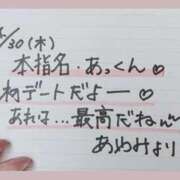 /30(木)
本指名・あっくん♡
初デートだよー♡
あれは…最高だねぃ〜
あゆみより